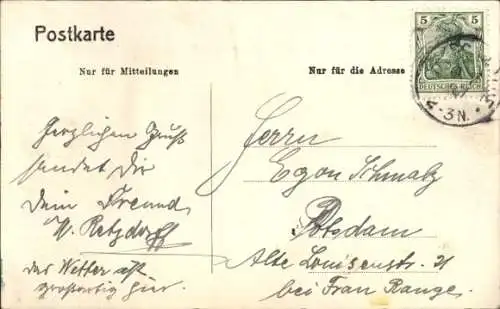 Postkarte
Nur für Mitteilungen
Nur für die Adresse
5 5
DEUTSCHES REICH
-3N.
Herzlichen Gruß
sendet Dir
Dein Freund
W. Retzdorff
das Wetter ist
großartig hier.
Herrn
Egon Schmalz
Potsdam
Alte Louisenstr. 21
bei Frau Range.